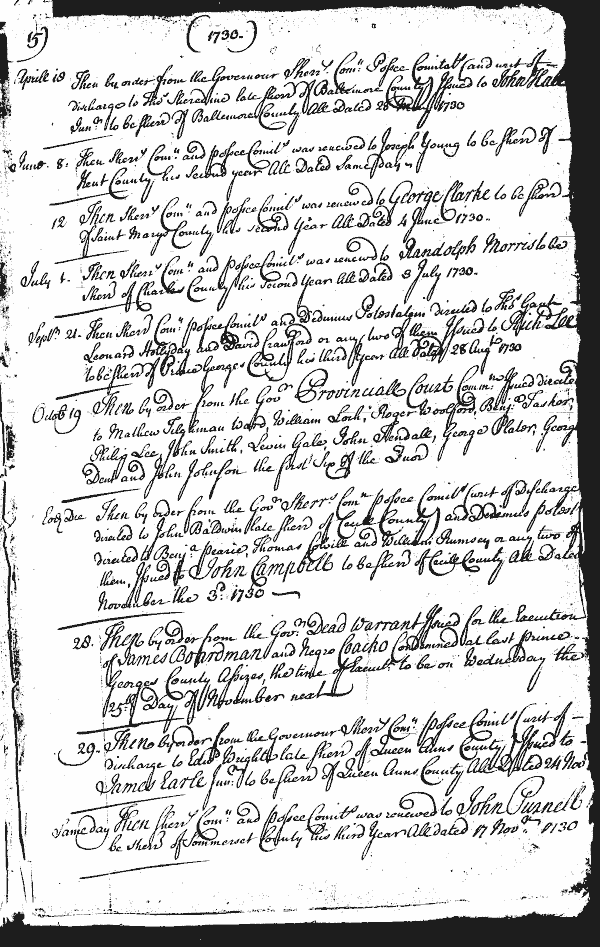 15 (1730.)
Aprill 18 Then by order from the Governour Sherrs. Comn. Possee Comitats. (and writ of
discharge to Thos. Sheredine late sherrif of Baltemore County) Issued to John Hall
Junr. to be sherrif of Baltemore County All Dated 28 May 1730
June. 8. Then Sherrs. Comn. and possee Comits. was renewed to Joseph Young to be sherrif of
Kent County his second year All Dated Same day
12 Then Sherrs. Comn. and possee Comits. was renewed to George Clarke to be sherrif
of Saint Marys County his second Year All Dated 4 June 1730.
July 1. Then Sherrs. Comn. and possee Comits. was renewed to Randolph Morris to be
Sherrif of Charles County his second Year All Dated 8 July 1730.
Septr. 21. Then Sherrs. Comn. possee Comits. and Dedimus Potestatem directed to Thos. Gant
Leonard Holliday and David Craufurd or any two of them Issued to Richd. Lee
to be sherrif of Prince Georges County his third Year All Dated 28 Augt. 1730
Octob 19 Then by order from the Govr. Provinciall Court Commn. Issued directed
to Mathew Tilghman Ward, William Lock, Roger Woolford, Benja. Tasker,
Philip Lee, John Smith, Levin Gale, John Rendall, George Plater, George
Dent and John Johnson the first Six of the Quor
Eod: Die Then by order from the Govr. Sherrs. Comn. possee Comits. (writ of Discharge
directed to John Baldwin late sherrif of Cecill County) and Dedemus potest
directed to Benja. Pearce, Thomas Colvill and William Rumsey or any two of
them, Issued to John Campbell to be sherrif of Cecill County All Dated
November the 3d. 1730
28. Then by order from the Govr. Dead Warrant Issued for the Execution
of James Boardman and Negro Coacko Condemned at last Prince
Georges County Assizes, the time of Execut. to be on Wednesday the
25th Day of November next
29. Then by order from the Governour Sherrs. Comn. possee Comits. (writ of
discharge to Edwd. Wright late sherrif of Queen Anns County) Issued to
James Earle Junr. to be sherrif of Queen Anns County All Dated 24 Nov
Same day Then Sherrs. Comn. and possee Comits. was renewed to John Purnell
be sherrif of Sommerset County his third Year All dated 17 Novr. 1730